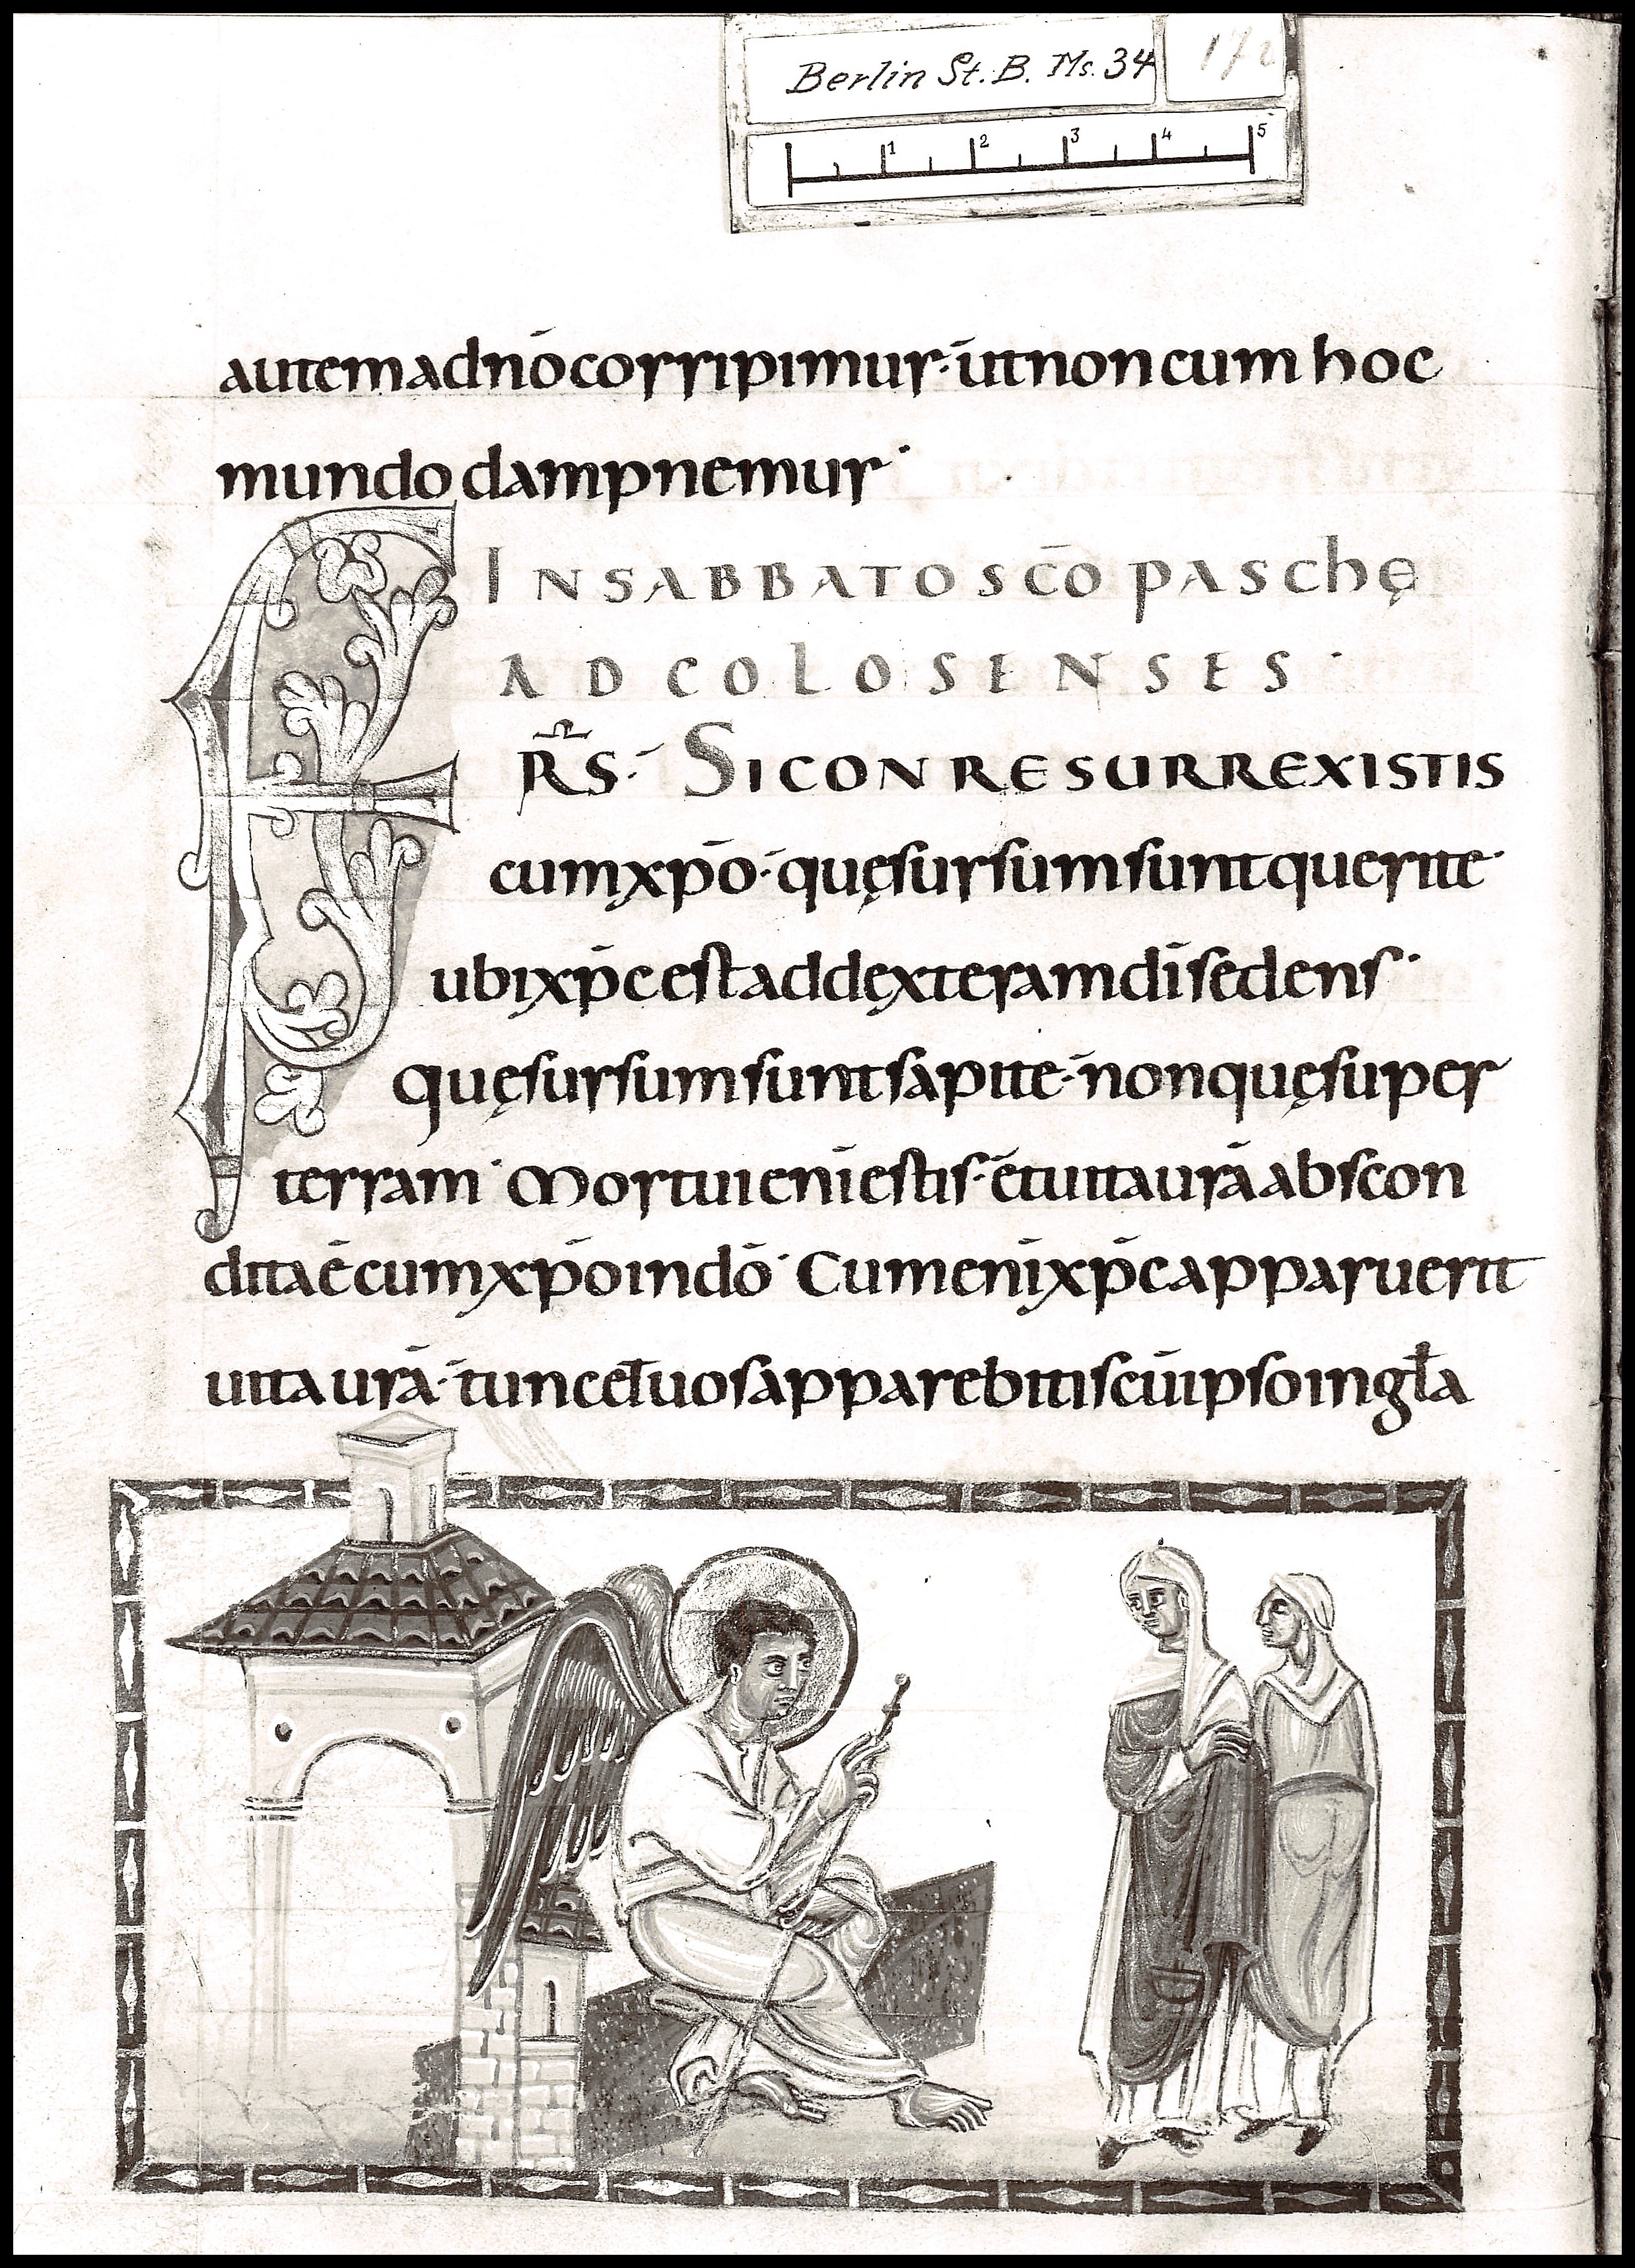 Berlin St. B. Ms. 34
1 2 3 4 5
autem a dn̄o corripimur· ut non cum hoc
mundo dampnemur·
IN SABBATO SC̄O PASChę
AD COLOSENSES·
F R̄S· SI CONRESURREXISTIS
cum xp̄o· quę sursum sunt querite·
ubi xp̄c est ad dexteram dī sedens·
quę sursum sunt sapite· non quę super
terram· Mortui enī estis· et uita urā abscon
dita ē cum xp̄o in dō· Cum enī xp̄c apparuerit
uita urā· tunc et uos apparebitis cū ipso in gła